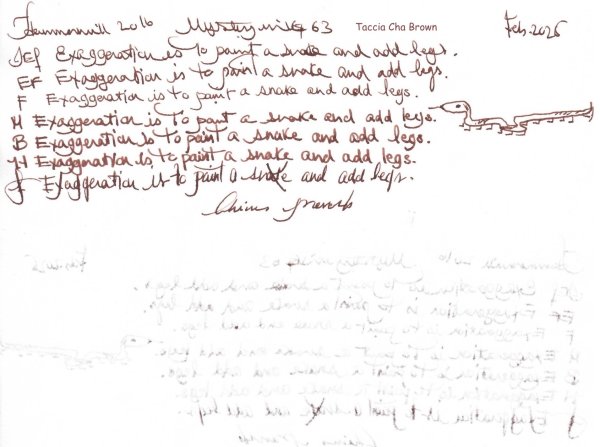 Hammermill 20lb Mystery ink 63 Taccia Cha Brown Feb. 2025
Exaggeration is to paint a snake and add legs.
EF Exaggeration is to paint a snake and add legs.
F Exaggeration is to paint a snake and add legs.
M Exaggeration is to paint a snake and add legs.
B Exaggeration is to paint a snake and add legs.
Exaggeration is to paint a snake and add legs.
Exaggeration is to paint a snake and add legs.
Chinese proverb